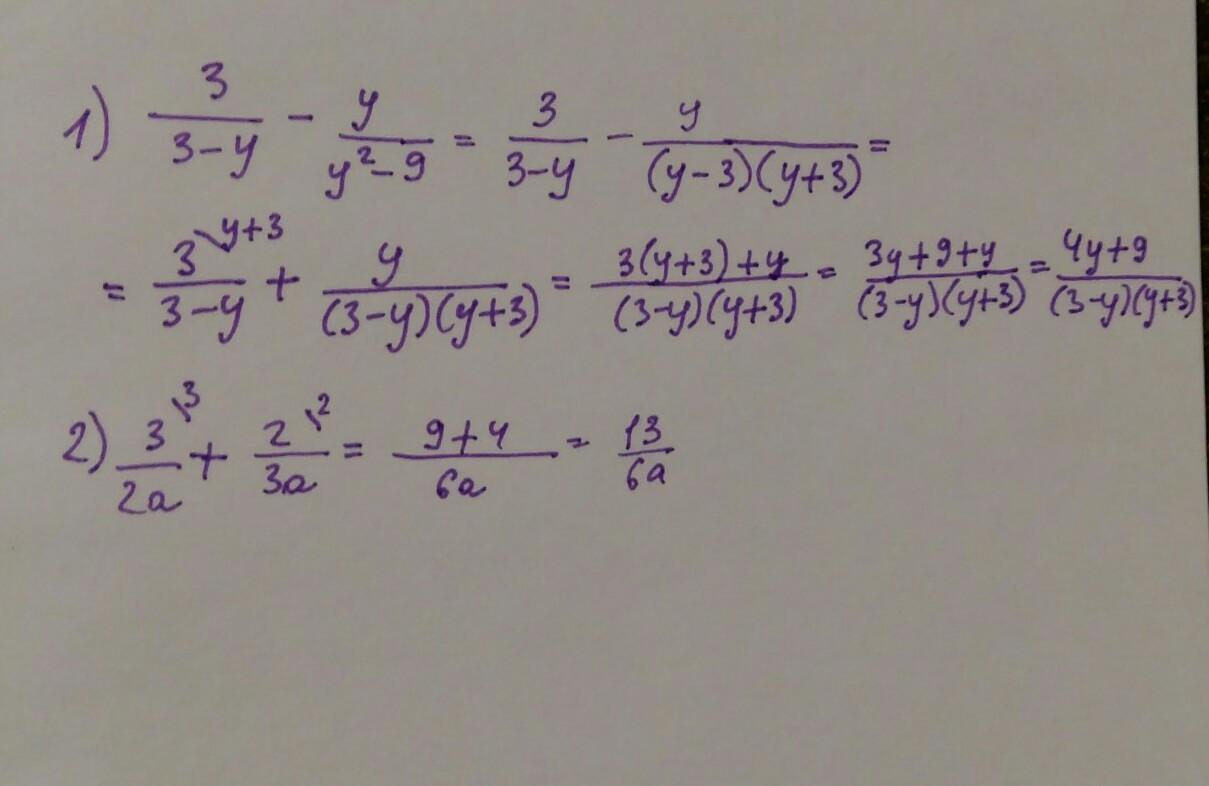 1) 3/(3-y) - y/(y²-9) = 3/(3-y) - y/((y-3)(y+3)) =
= 3\y+3/(3-y) + y/((3-y)(y+3)) = (3(y+3)+y)/((3-y)(y+3)) = (3y+9+y)/((3-y)(y+3)) = (4y+9)/((3-y)(y+3))
2) 3\3/(2a) + 2\2/(3a) = (9+4)/(6a) = 13/(6a)